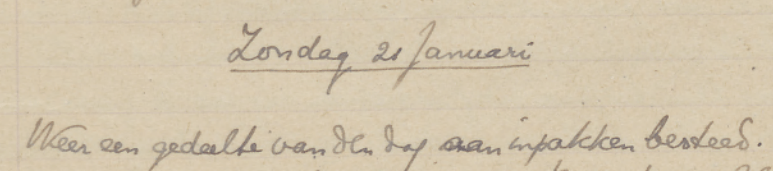 Zondag 21 Januari
Weer een gedeelte van den dag aan inpakken besteed.